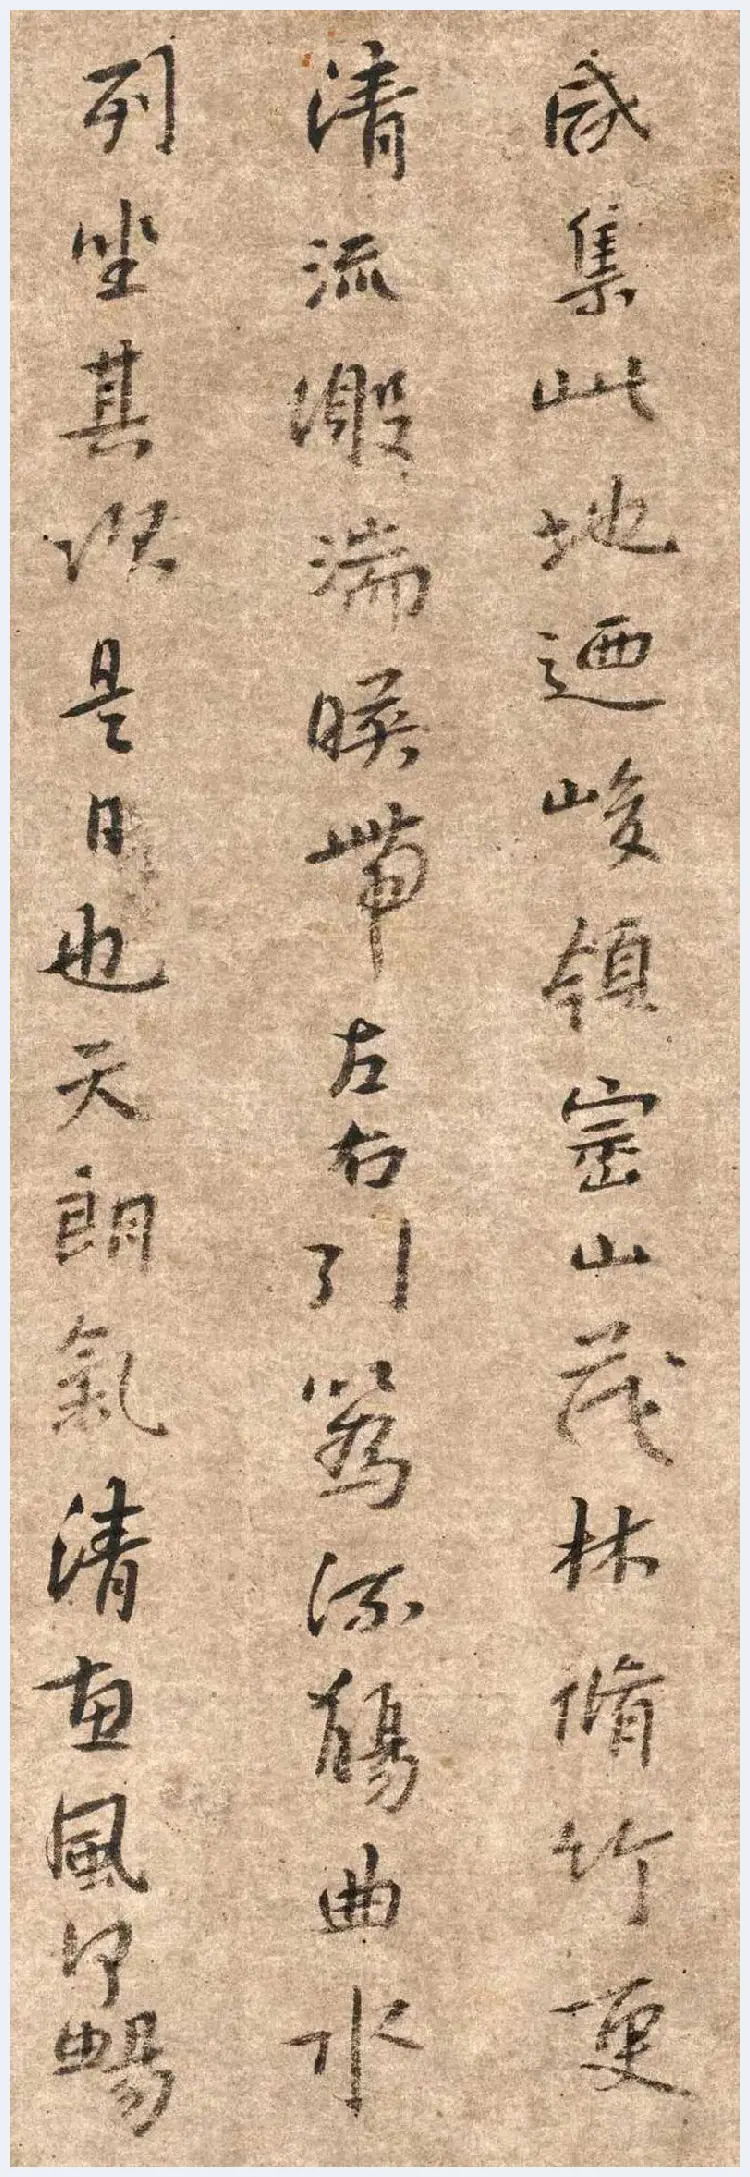 咸集此地迺峻領崇山茂林脩竹更
清流激湍暎帶左右引以為流觴曲水
列坐其次是日也天朗氣清惠風和暢